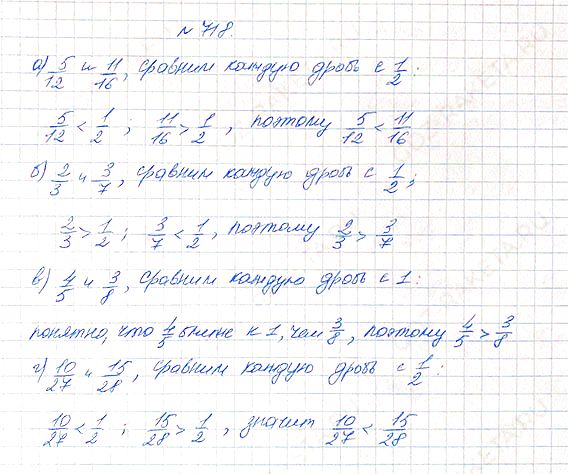 № 718.
а) 5/12 и 11/16, сравним каждую дробь с 1/2:
5/12 < 1/2 ; 11/16 > 1/2, поэтому 5/12 < 11/16
б) 2/3 и 3/7, сравним каждую дробь с 1/2;
2/3 > 1/2; 3/7 < 1/2, поэтому 2/3 > 3/7
в) 4/5 и 3/8, сравним каждую дробь с 1:
понятно, что 4/5 ближе к 1, чем 3/8, поэтому 4/5 > 3/8
г) 10/27 и 15/28, сравним каждую дробь с 1/2:
10/27 < 1/2 ; 15/28 > 1/2, значит 10/27 < 15/28